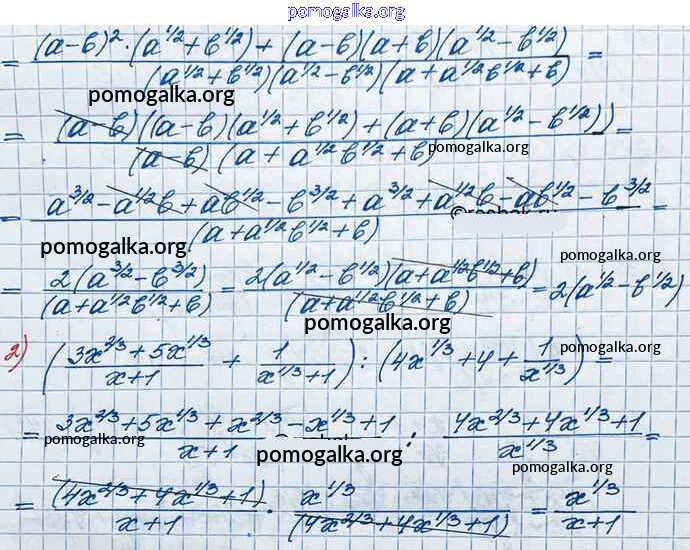 pomogalka.org
= ((a-b)²·(a^1/2+b^1/2)+(a-b)(a+b)(a^1/2-b^1/2))/((a^1/2+b^1/2)(a^1/2-b^1/2)(a+a^1/2b^1/2+b)) =
pomogalka.org
= ((a-b)((a-b)(a^1/2+b^1/2)+(a+b)(a^1/2-b^1/2)))/((a-b)(a+a^1/2b^1/2+b)) =
pomogalka.org
= (a^3/2-a^1/2b+ab^1/2-b^3/2+a^3/2+a^1/2b-ab^1/2-b^3/2)/(a+a^1/2b^1/2+b) =
pomogalka.org pomogalka.org
= 2(a^3/2-b^3/2)/(a+a^1/2b^1/2+b) = 2(a^1/2-b^1/2)(a+a^1/2b^1/2+b)/(a+a^1/2b^1/2+b) = 2(a^1/2-b^1/2)
pomogalka.org
2) ((3x^2/3+5x^1/3)/(x+1) + 1/(x^1/3+1)) : (4x^1/3+4+1/x^1/3) =
pomogalka.org
= (3x^2/3+5x^1/3+x^2/3-x^1/3+1)/(x+1) : (4x^2/3+4x^1/3+1)/x^1/3 =
pomogalka.org
pomogalka.org
pomogalka.org
= (4x^2/3+4x^1/3+1)/(x+1) · x^1/3/(4x^2/3+4x^1/3+1) = x^1/3/(x+1)